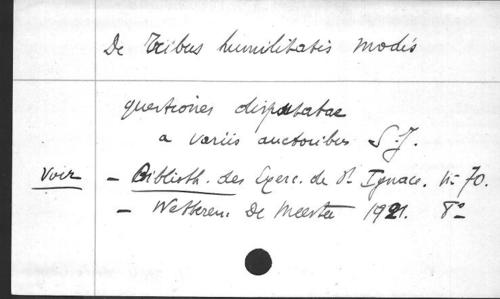 De Tribus humilitatis modis
quaestiones disputatae
a variis auctoribus S.J.
Voir – Biblioth. des Exerc. de St Ignace. No 70.
– Wetteren. De Meester 1921. 8o